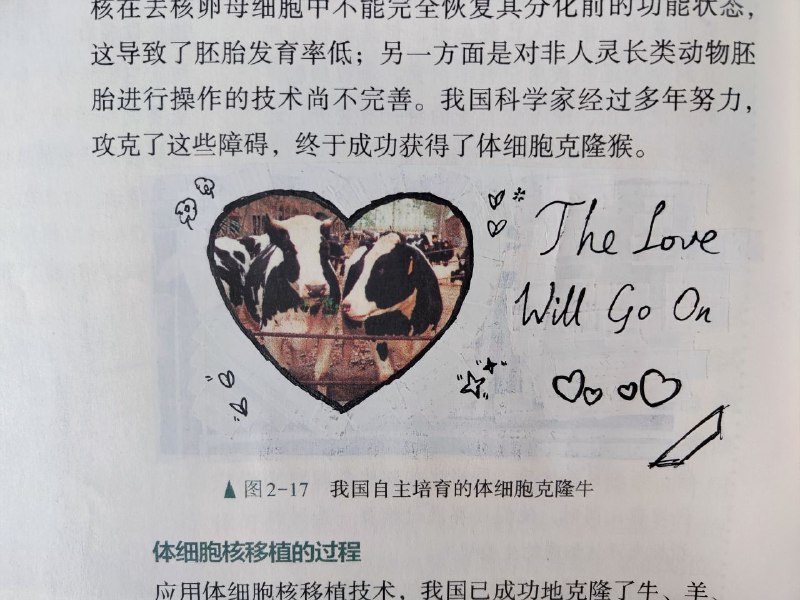 核在去核卵母细胞中不能完全恢复其分化前的功能状态，
这导致了胚胎发育率低；另一方面是对非人灵长类动物胚
胎进行操作的技术尚不完善。我国科学家经过多年努力，
攻克了这些障碍，终于成功获得了体细胞克隆猴。
The Love
Will Go On
▲图2-17 我国自主培育的体细胞克隆牛
体细胞核移植的过程
应用体细胞核移植技术，我国已成功地克隆了牛、羊、